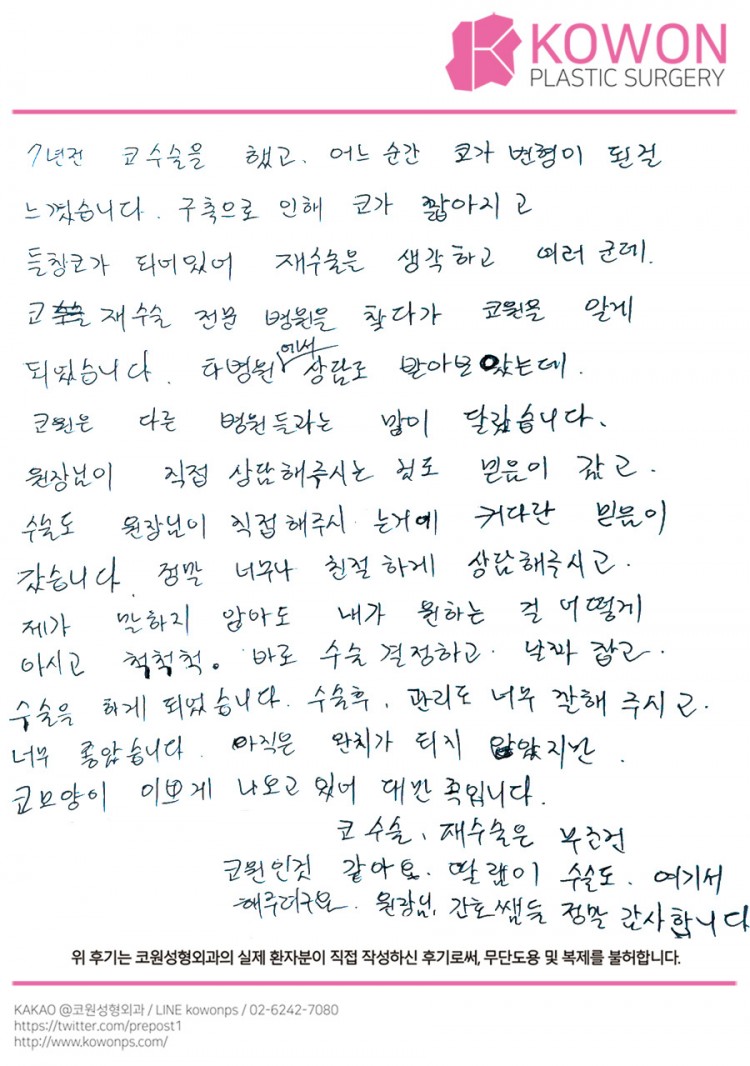 KOWON
PLASTIC SURGERY
7년전 코수술을 했고. 어느순간 코가 변형이 된걸
느꼈습니다. 구축으로 인해 코가 짧아지고
들창코가 되어있어 재수술을 생각하고 여러 군데.
코 재수술 전문 병원을 찾다가 코원을 알게
되었습니다. 타병원에서 상담도 받아보았는데.
코원은 다른 병원들과는 많이 달랐습니다.
원장님이 직접 상담해주시는 점도 믿음이 갔고.
수술도 원장님이 직접해주시는거에 커다란 믿음이
갔습니다. 정말 너무나 친절하게 상담해주시고.
제가 말하지 않아도 내가 원하는 걸 어떻게
아시고 척척척. 바로 수술 결정하고. 날짜 잡고.
수술을 하게 되었습니다. 수술후, 관리도 너무 잘해 주시고.
너무 좋았습니다. 아직은 완치가 되지 않았지만.
코모양이 이쁘게 나오고 있어 대만족입니다.
코 수술, 재수술은 무조건
코원인것 같아요. 딸램이 수술도. 여기서
해주려구요. 원장님, 간호쌤들 정말 감사합니다
위 후기는 코원성형외과의 실제 환자분이 직접 작성하신 후기로써, 무단도용 및 복제를 불허합니다.
KAKAO @코원성형외과 / LINE kowonps / 02-6242-7080
https://twitter.com/prepost1
http://www.kowonps.com/